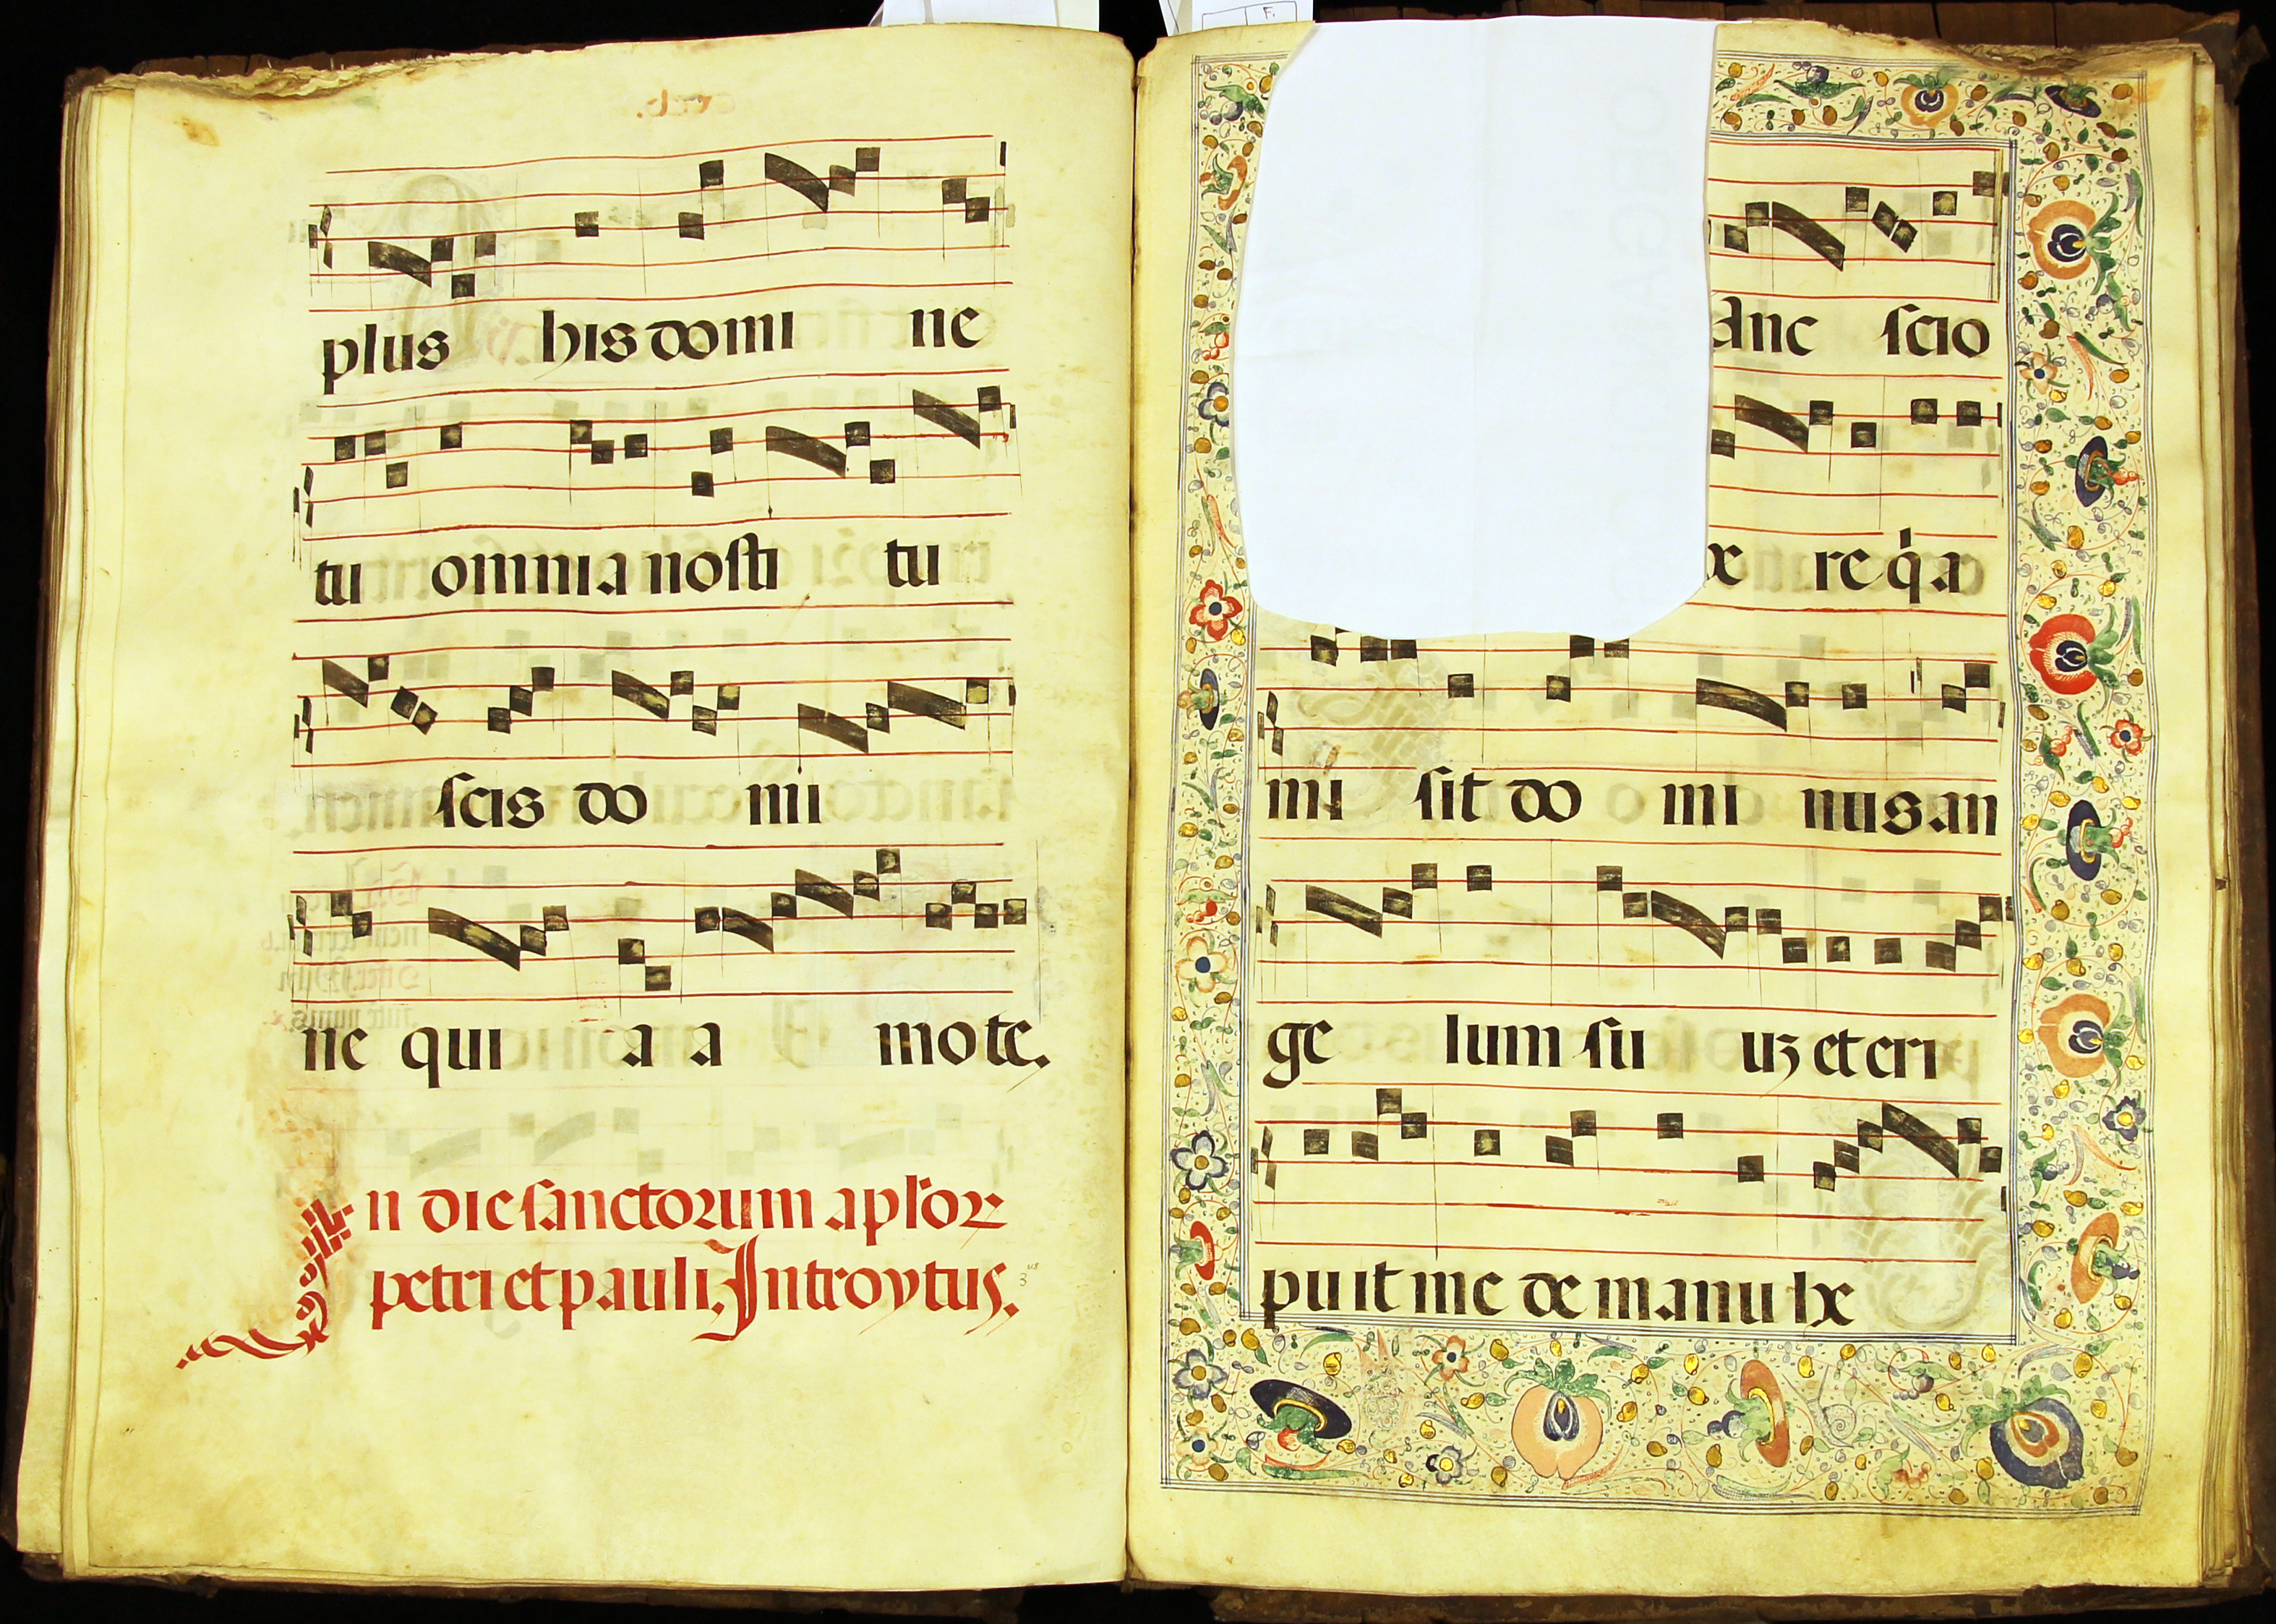 plus his domi ne
tu omnia nosti tu
scis do mi
ne qui a a mo te.
In die sanctorum aplor
petri et pauli. Introytus.
anc scio
re q a
mi sit do mi nus an
ge lum su uz et eri
puit me de manu he
F.